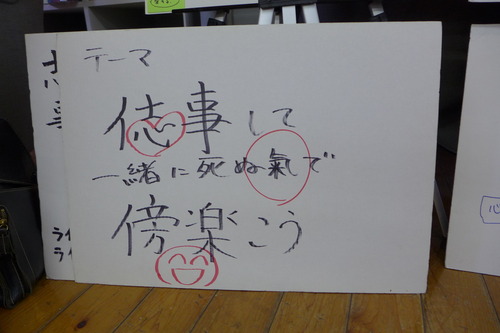 テーマ
俧事して
一緒に死ぬ氣で
傍楽こう
心